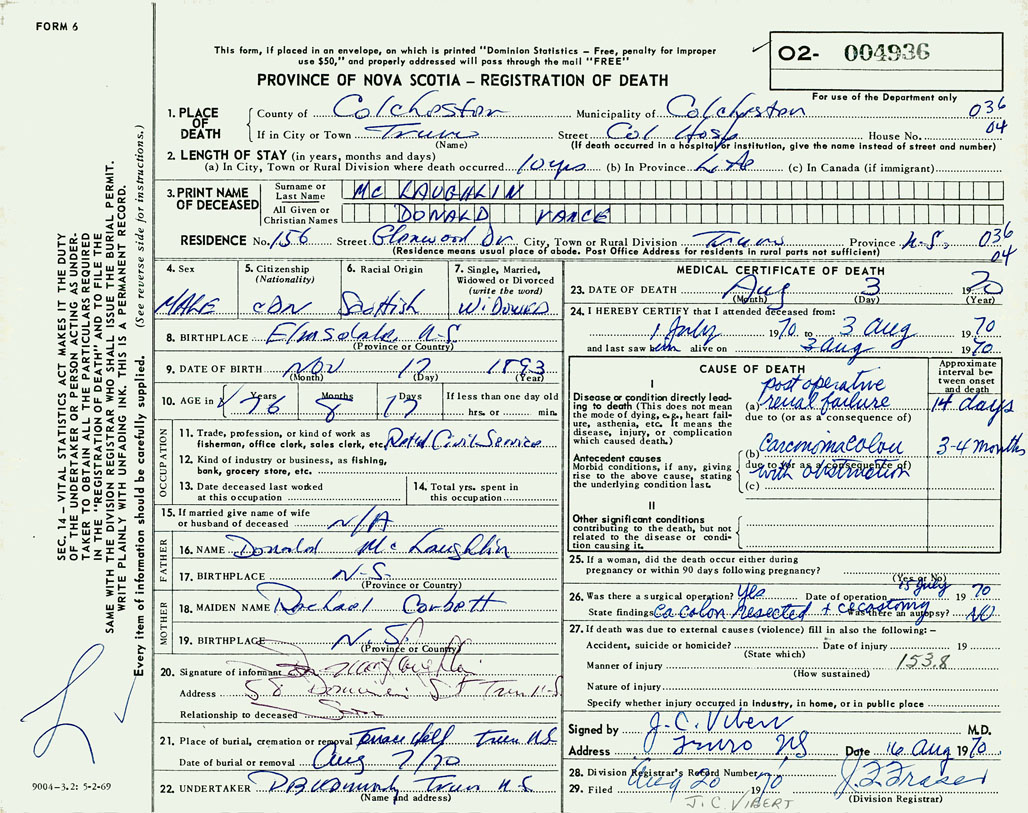 FORM 6
This form, if placed in an envelope, on which is printed "Dominion Statistics – Free, penalty for improper
use $50," and properly addressed will pass through the mail "FREE"
O2- 004936
PROVINCE OF NOVA SCOTIA – REGISTRATION OF DEATH
For use of the Department only
1. PLACE OF DEATH County of Colchester Municipality of Colchester 036
If in City or Town Truro Street Col Hosp House No. 04
(Name) (If death occurred in a hospital or institution, give the name instead of street and number)
2. LENGTH OF STAY (in years, months and days)
(a) In City, Town or Rural Division where death occurred 10 yrs (b) In Province Life (c) In Canada (if immigrant)
3. PRINT NAME OF DECEASED Surname or Last Name MC LAUGHLIN
All Given or Christian Names DONALD VANCE
RESIDENCE No. 156 Street Glenwood Dr City, Town or Rural Division Truro Province N.S. 036
(Residence means usual place of abode. Post Office Address for residents in rural parts not sufficient) 04
4. Sex MALE
5. Citizenship (Nationality) CDN
6. Racial Origin Scottish
7. Single, Married, Widowed or Divorced (write the word) WIDOWED
8. BIRTHPLACE Elmsdale, N-S
(Province or Country)
9. DATE OF BIRTH Nov 17 1893
(Month) (Day) (Year)
10. AGE in Years 76 Months 8 Days 17 If less than one day old
hrs. or min.
OCCUPATION
11. Trade, profession, or kind of work as
fisherman, office clerk, sales clerk, etc. Retd Civil Service
12. Kind of industry or business, as fishing,
bank, grocery store, etc.
13. Date deceased last worked
at this occupation
14. Total yrs. spent in
this occupation
15. If married give name of wife
or husband of deceased N/A
FATHER
16. NAME Donald McLaughlin
17. BIRTHPLACE N-S.
(Province or Country)
MOTHER
18. MAIDEN NAME Rachael Corbett
19. BIRTHPLACE N.S.
(Province or Country)
20. Signature of informant
Address 58 Dominion St Truro N-S
Relationship to deceased Son
21. Place of burial, cremation or removal Terrace Hill Truro NS
Date of burial or removal Aug 7/70
22. UNDERTAKER Truro N.S.
(Name and address)
MEDICAL CERTIFICATE OF DEATH
23. DATE OF DEATH Aug 3 1970
(Month) (Day) (Year)
24. I HEREBY CERTIFY that I attended deceased from:
1 July 1970 to 3 Aug 1970
and last saw him alive on 3 Aug 1970
CAUSE OF DEATH
Approximate interval between onset and death
I
Disease or condition directly leading to death (This does not mean the mode of dying, e.g., heart failure, asthenia, etc. It means the disease, injury, or complication which caused death.)
(a) post operative renal failure 14 days
due to (or as a consequence of)
Antecedent causes
Morbid conditions, if any, giving rise to the above cause, stating the underlying condition last.
(b) Carcinoma colon 3-4 months
due to (or as a consequence of)
with obstruction
(c)
II
Other significant conditions
contributing to the death, but not related to the disease or condition causing it.
25. If a woman, did the death occur either during
pregnancy or within 90 days following pregnancy?
(Yes or No)
26. Was there a surgical operation? Yes Date of operation 15 July 1970
State findings ca colon resected + cecostomy Was there an autopsy? NO
27. If death was due to external causes (violence) fill in also the following: –
Accident, suicide or homicide? Date of injury 19
(State which)
Manner of injury 153.8
(How sustained)
Nature of injury
Specify whether injury occurred in Industry, in home, or in public place
Signed by J.C. Vibert M.D.
Address Truro NS Date 16 Aug 1970
28. Division Registrar's Record Number
29. Filed Aug 20 1970 J.F. Fraser
(Division Registrar)
J.C. VIBERT
SEC. 14 – VITAL STATISTICS ACT MAKES IT THE DUTY
OF THE UNDERTAKER OR PERSON ACTING AS UNDER-
TAKER TO OBTAIN ALL THE PARTICULARS REQUIRED
IN THE "REGISTRATION OF DEATH" AND TO FILE THE
SAME WITH THE DIVISION REGISTRAR WHO SHALL ISSUE THE BURIAL PERMIT.
WRITE PLAINLY WITH UNFADING INK. THIS IS A PERMANENT RECORD.
Every item of information should be carefully supplied. (See reverse side for instructions.)
9004-3.2: 5-2-69